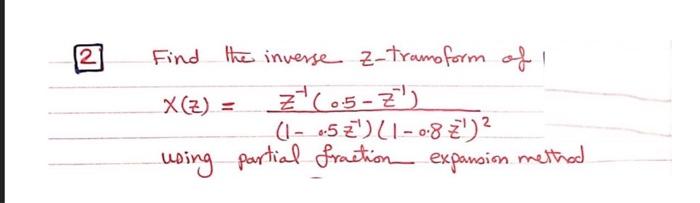 2 Find the inverse z-transform of
X(z) = z⁻¹(0.5 - z⁻¹)
(1 - .5z⁻¹)(1 - 0.8z⁻¹)²
using partial fraction expansion method